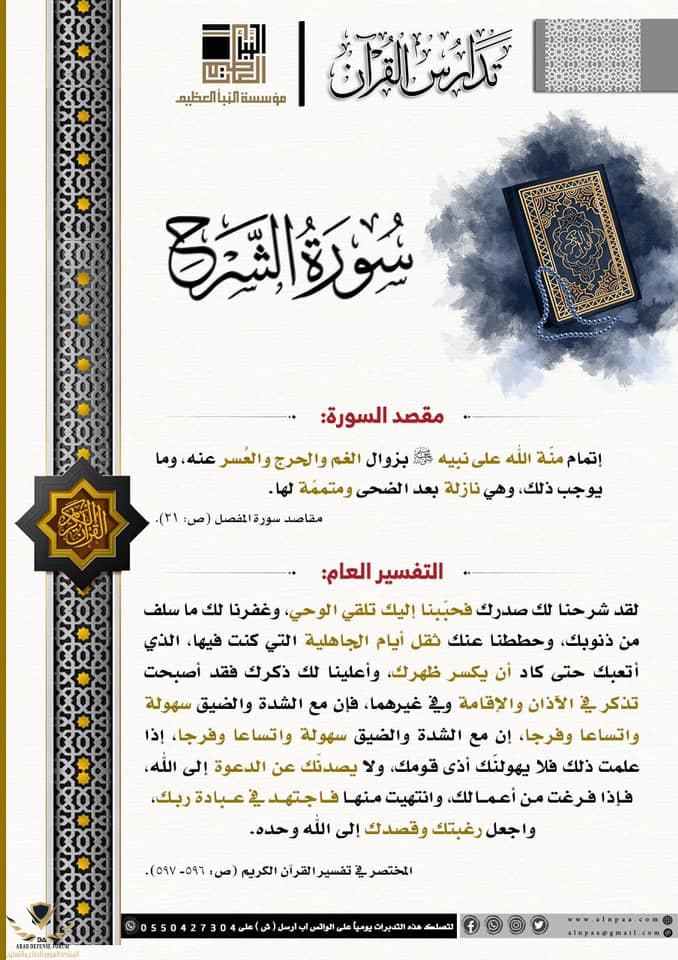 تَدَارُسُ القُرْآن
النبأ العظيم
مؤسسة النبأ العظيم
سُورَةُ الشَّرْحِ
مقصد السورة:
إتمام منّة الله على نبيه ﷺ بزوال الغم والحرج والعُسر عنه، وما
يوجب ذلك، وهي نازلة بعد الضحى ومتممّة لها.
مقاصد سورة المفصل (ص: ٢١).
القرآن الكريم
التفسير العام:
لقد شرحنا لك صدرك فحبّبنا إليك تلقي الوحي، وغفرنا لك ما سلف
من ذنوبك، وحططنا عنك ثقل أيام الجاهلية التي كنت فيها، الذي
أتعبك حتى كاد أن يكسر ظهرك، وأعلينا لك ذكرك فقد أصبحت
تذكر في الآذان والإقامة وفي غيرهما، فإن مع الشدة والضيق سهولة
واتساعا وفرجا، إن مع الشدة والضيق سهولة واتساعا وفرجا، إذا
علمت ذلك فلا يهولنّك أذى قومك، ولا يصدنّك عن الدعوة إلى الله،
فإذا فرغت من أعمالك، وانتهيت منها فاجتهد في عبادة ربك،
واجعل رغبتك وقصدك إلى الله وحده.
المختصر في تفسير القرآن الكريم (ص: ٥٩٦- ٥٩٧).
www.alnpaa.com
alnpaa@gmail.com
لتصلك هذه التدبرات يومياً على الواتس آب أرسل (ش) على 0550427304
ARAB DEFENSE FORUM
المنتدى العربي للدفاع والتسليح